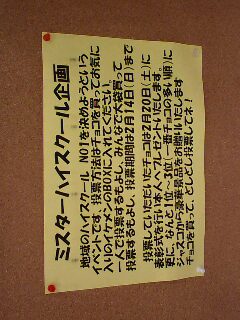 ミスターハイスクール企画
地域のハイスクール NO1を決めようという
イベントです。投票方法はチョコを買ってお気に
入りのイケメンのBOXに入れてください。
一人で投票するもよし、みんなで大袋買って
投票するもよし、投票期間は2月14日(日)まで
投票していただいたチョコは2月20日(土)に
表彰式を行い本人へプレゼントいたします。
更に、なんと1位～3位(一番チョコの多い順)に
ジャスコから豪華景品をお贈りいたします
チョコを買って、どしどし投票してネ!